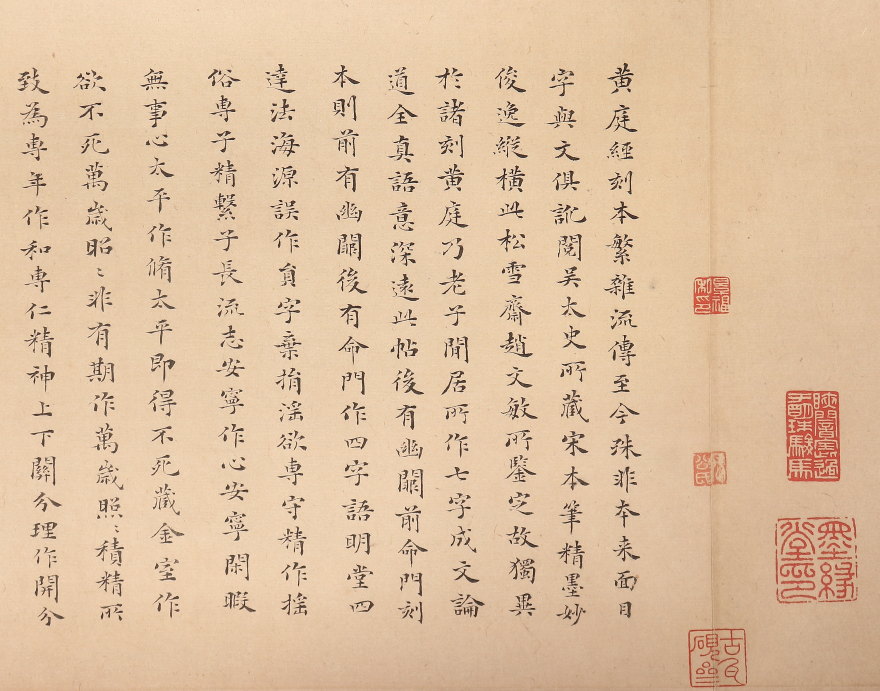 黄庭經刻本繁雜流傳至今殊非本来面目
字與文俱訛閱吴太史所藏宋本筆精墨妙
俊逸縱橫此松雪齋趙文敏所鑒定故獨異
於諸刻黄庭乃老子閒居所作七字成文論
道全真語意深遠此帖後有幽闕前命門刻
本則前有幽闕後有命門作四字語明堂四
達法海源誤作貟字棄捐滛欲専守精作揺
俗専子精繫子長流志安寧作心安寧閑暇
無事心太平作脩太平即得不死藏金室作
欲不死萬歲昭〻非有期作萬歲照〻積精所
致為専年作和専仁精神上下關分理作開分
墨緣堂印